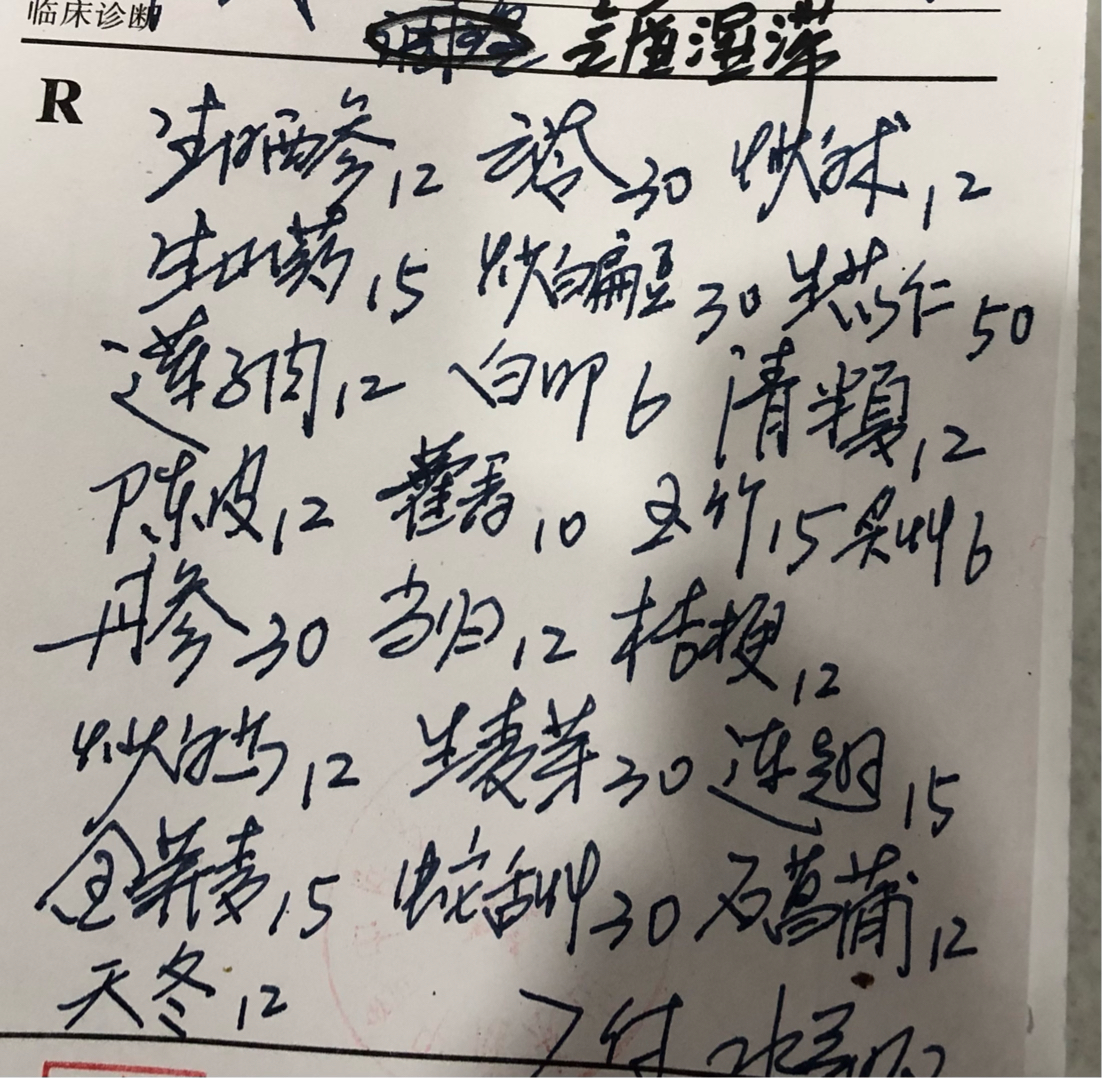 临床诊断
R
生晒参12 云苓30 炒白术12
生山药15 炒白扁豆30 生苡仁50
莲子肉12 白叩6 清半夏12
陈皮12 藿香10 玉竹15 炙草6
丹参30 当归12 桔梗12
炒白芍12 生麦芽30 连翘15
15 蛇舌草30 石菖蒲12
天冬12
7付 水煎服